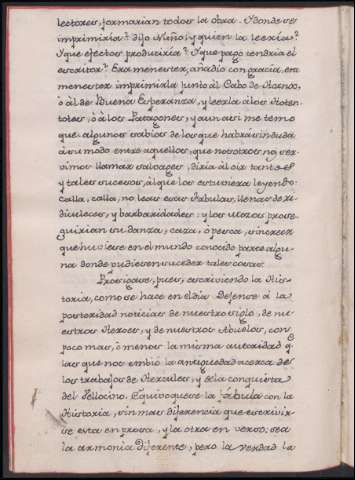 lectores, formarian todos la obra. Y donde se
imprimiria? dijo Nuño; y quien la leeria?
Y que efectos produciria? Y que pago tendria el
escritor? Era menester, añadio con gracia, era
menester imprimirla junto àl Cabo de Hornos,
ò àl de Buena Esperanza, y leerla à los Hoten-
totes, ò à los Patagones, y aun asi me temo
que algunos sabios de los que habrá sin duda
à su modo entre aquellos, que nosotros nos ser-
vimos llamar salvages, diria àl oir tantos
y tales sucesos, àl que los estuviera leyendo:
calla, calla, no leas esas fabulas, llenas de ri-
diculeces, y barbaridades: y los otros prose-
guirian su danza, caza, ò pesca, sin creer
que huviese en el mundo conocido parte algu-
na donde pudiesen suceder tales cosas.
Prosigase, pues, escriviendo la His-
toria, como se hace en el dia. Dejense à la
posteridad noticias de nuestro siglo, de nu-
estros Heroes, y de nuestros Abuelos, con
poco mas, ò menos la misma autoridad q.
las que nos embió la antigüedad acerca de
los trabajos de Hercules, y de la conquista
del Vellocino. Equivoquese la fabula con la
Historia, sin mas diferencia que escrivir-
se esta en prosa, y la otra en verso; sea
la armonia diferente, pero la verdad la